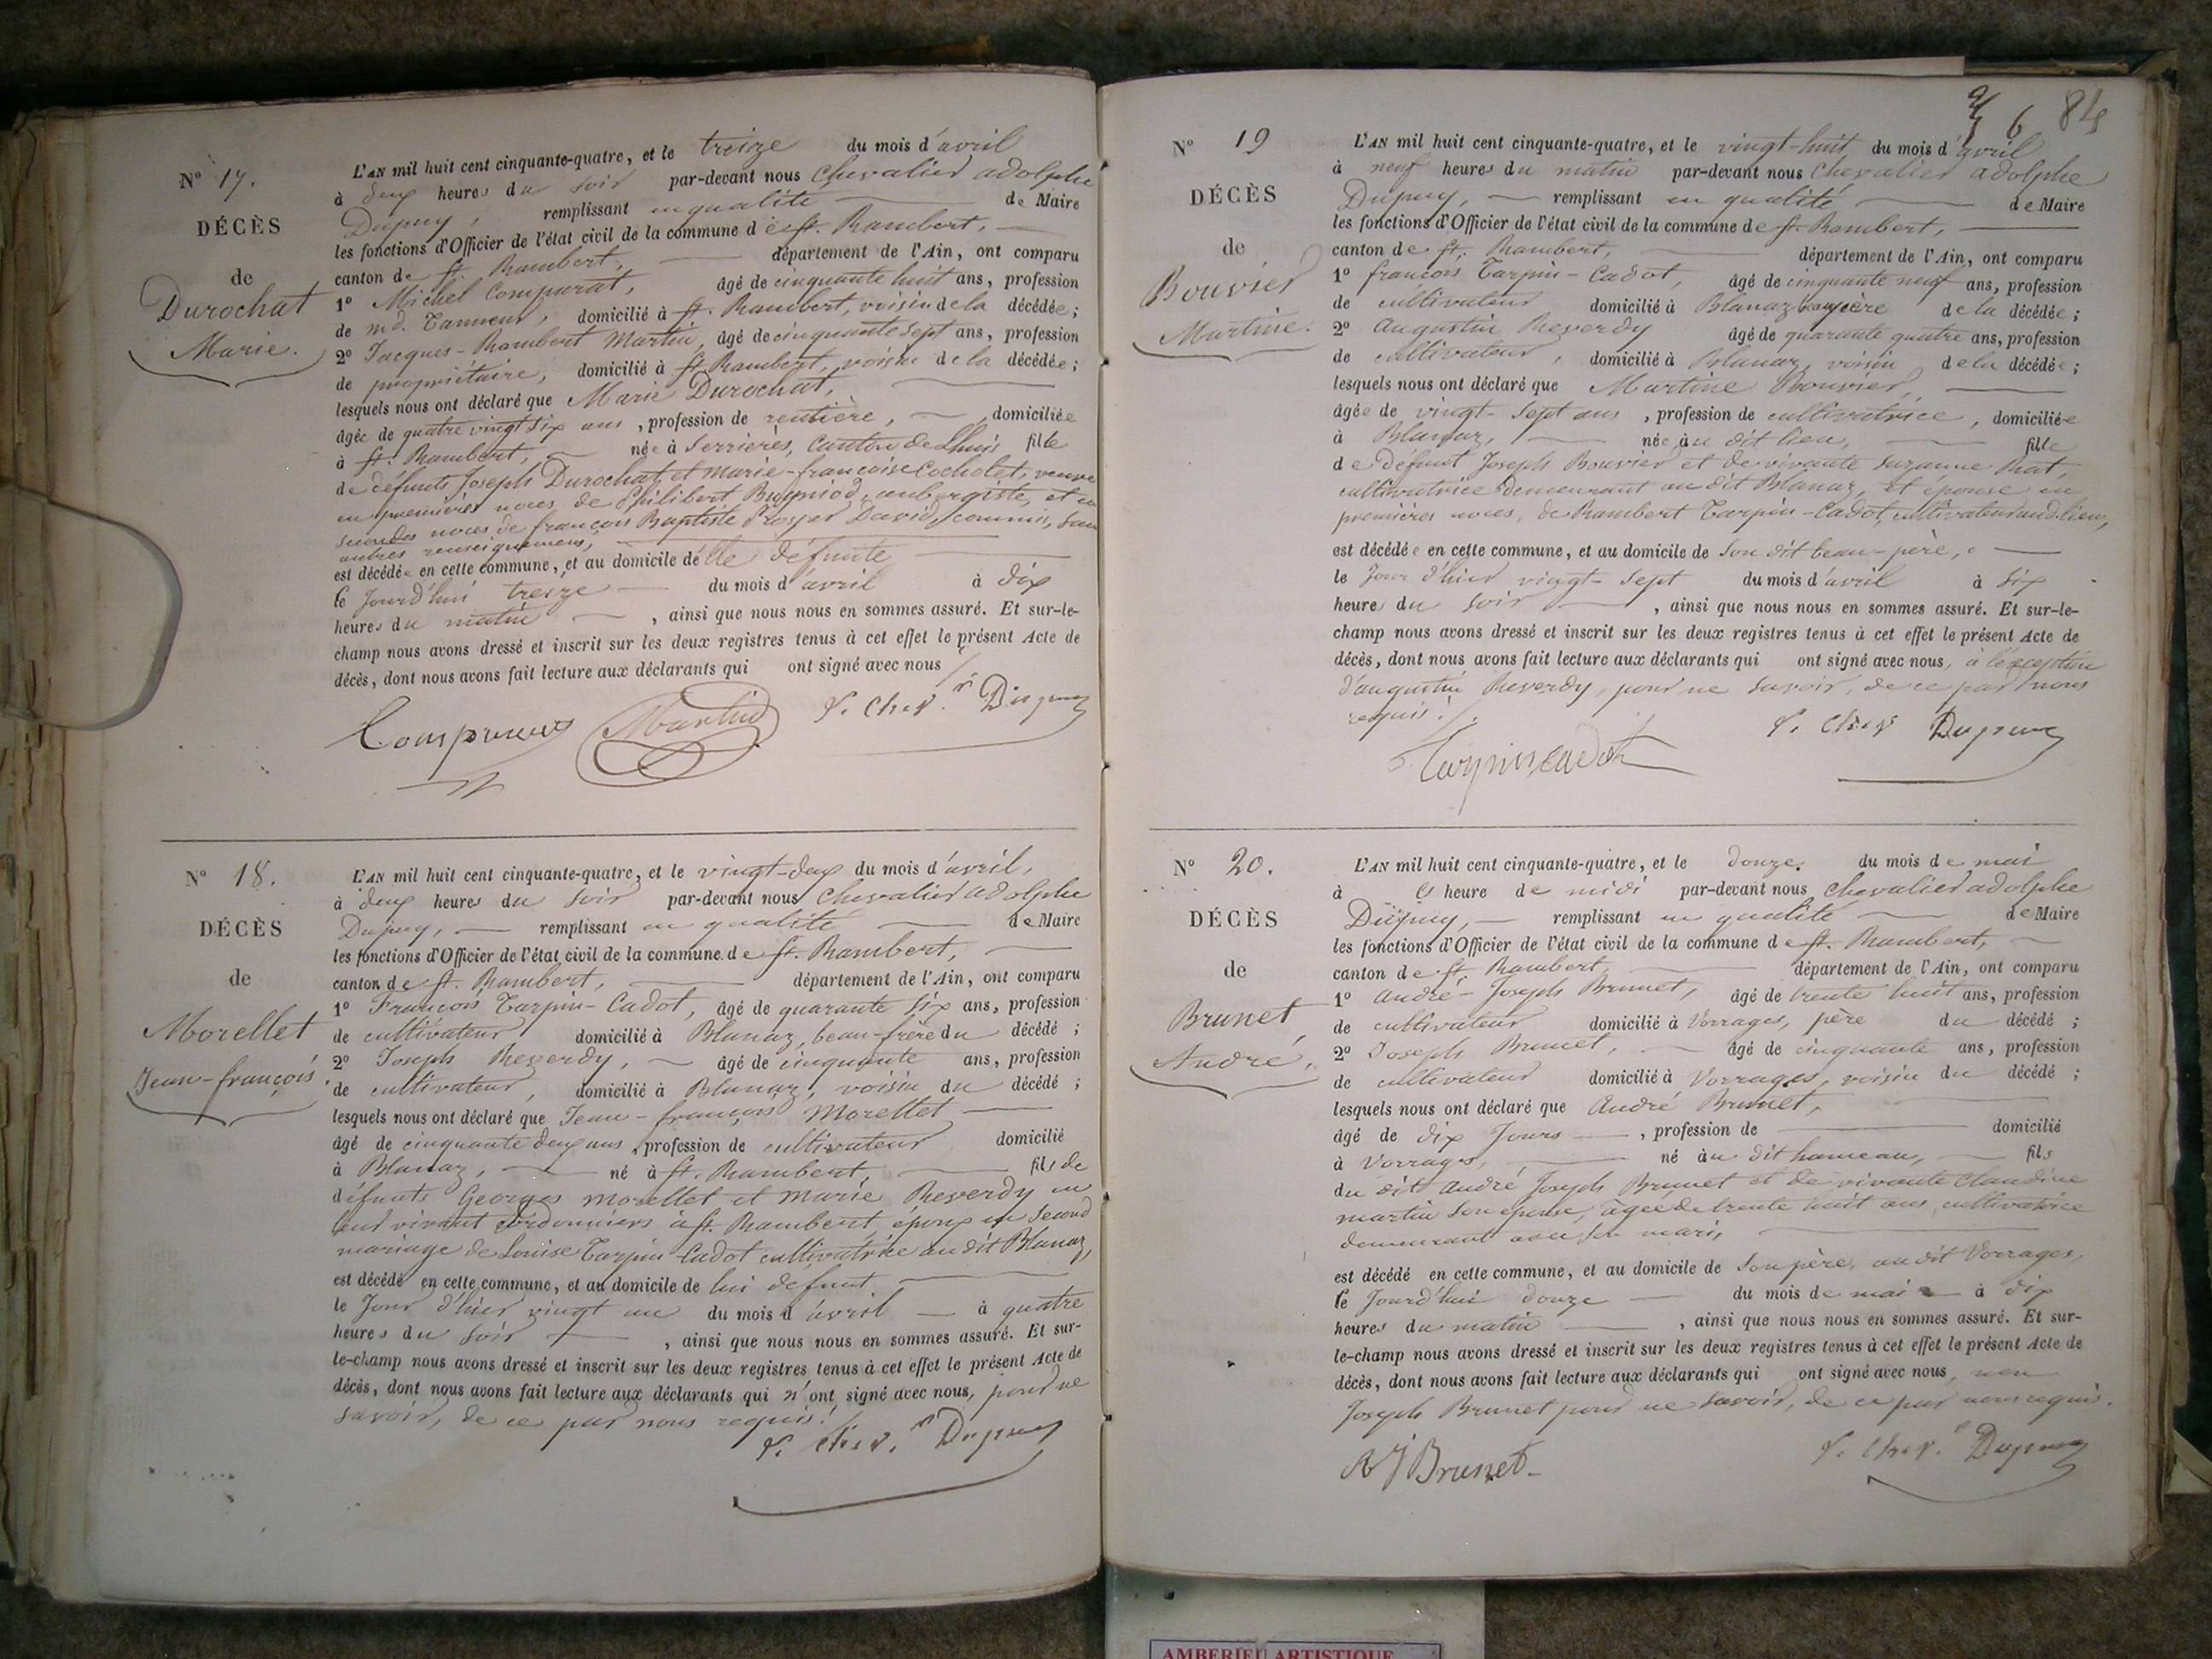 N° 17.
DÉCÈS
de
Durochat
Marie.
L'AN mil huit cent cinquante-quatre, et le treize du mois d'avril
à deux heures du soir par-devant nous Chevalier adolphe
Dupuy, remplissant en qualité de Maire
les fonctions d'Officier de l'état civil de la commune de St. Rambert,
canton de St. Rambert, département de l'Ain, ont comparu
1° Michel Comparat, âgé de cinquante huit ans, profession
de md. Tanneur, domicilié à St. Rambert, voisin de la décédée;
2° Jacques-Rambert Martin, âgé de cinquante sept ans, profession
de propriétaire, domicilié à St. Rambert, voisin de la décédée;
lesquels nous ont déclaré que Marie Durochat,
âgée de quatre vingt six ans, profession de rentière, domiciliée
à St. Rambert, née à Serrières, Canton de Lhuis fille
de défunts Joseph Durochat et Marie-françoise Cocholet, veuve
en premières noces de Philibert Bugniod, aubergiste, et en
secondes noces de françois Baptiste Prosper David, commis, sans
autres renseignemens,
est décédée en cette commune, et au domicile d'elle défunte
le Jourd'hui treize du mois d'avril à dix
heures du matin, ainsi que nous nous en sommes assuré. Et sur-le-
champ nous avons dressé et inscrit sur les deux registres tenus à cet effet le présent Acte de
décès, dont nous avons fait lecture aux déclarants qui ont signé avec nous
Martin Dupuy
N° 18.
DÉCÈS
de
Morellet
Jean-françois.
L'AN mil huit cent cinquante-quatre, et le vingt-deux du mois d'avril,
à deux heures du soir par-devant nous Chevalier adolphe
Dupuy, remplissant en qualité de Maire
les fonctions d'Officier de l'état civil de la commune de St. Rambert,
canton de St. Rambert, département de l'Ain, ont comparu
1° François Tarpin-Cadot, âgé de quarante six ans, profession
de cultivateur domicilié à Blanaz, beau-frère du décédé;
2° Joseph Reverdy, âgé de cinquante ans, profession
de cultivateur, domicilié à Blanaz, voisin du décédé;
lesquels nous ont déclaré que Jean-françois Morellet
âgé de cinquante deux ans, profession de cultivateur domicilié
à Blanaz, né à St. Rambert, fils de
défunts Georges Morellet et Marie Reverdy en
leur vivant cordonniers à St. Rambert, époux en second
mariage de Louise Tarpin-Cadot cultivatrice au dit Blanaz,
est décédé en cette commune, et au domicile de lui défunt
le Jour d'hier vingt un du mois d'avril à quatre
heures du soir, ainsi que nous nous en sommes assuré. Et sur-
le-champ nous avons dressé et inscrit sur les deux registres tenus à cet effet le présent Acte de
décès, dont nous avons fait lecture aux déclarants qui n'ont signé avec nous, pour ne
savoir, de ce par nous requis.
Dupuy
6 84
N° 19
DÉCÈS
de
Bouvier
Martine.
L'AN mil huit cent cinquante-quatre, et le vingt-huit du mois d'avril
à neuf heures du matin par-devant nous Chevalier Adolphe
Dupuy, remplissant en qualité de Maire
les fonctions d'Officier de l'état civil de la commune de St. Rambert,
canton de St. Rambert, département de l'Ain, ont comparu
1° françois Tarpin-Cadot, âgé de cinquante neuf ans, profession
de cultivateur domicilié à Blanaz beau-père de la décédée;
2° Augustin Reverdy âgé de quarante quatre ans, profession
de cultivateur, domicilié à Blanaz, voisin de la décédée;
lesquels nous ont déclaré que Martine Bouvier,
âgée de vingt-sept ans, profession de cultivatrice, domiciliée
à Blanaz, née au dit lieu, fille
de défunt Joseph Bouvier et de vivante Suzanne
cultivatrice demeurant au dit Blanaz, et épouse en
premières noces, de Rambert Tarpin-Cadot, cultivateur aud. lieu,
est décédée en cette commune, et au domicile de son dit beau-père,
le Jour d'hier vingt-sept du mois d'avril à six
heures du soir, ainsi que nous nous en sommes assuré. Et sur-le-
champ nous avons dressé et inscrit sur les deux registres tenus à cet effet le présent Acte de
décès, dont nous avons fait lecture aux déclarants qui ont signé avec nous, à l'exception
d'augustin Reverdy, pour ne savoir, de ce par nous
requis.
Dupuy
N° 20.
DÉCÈS
de
Brunet
André,
L'AN mil huit cent cinquante-quatre, et le douze. du mois de mai
à heure de midi par-devant nous Chevalier adolphe
Dupuy, remplissant en qualité de Maire
les fonctions d'Officier de l'état civil de la commune de St. Rambert,
canton de St. Rambert, département de l'Ain, ont comparu
1° André-Joseph Brunet, âgé de trente huit ans, profession
de cultivateur domicilié à Vorrages, père du décédé;
2° Joseph Brunet, âgé de cinquante ans, profession
de cultivateur domicilié à Vorrages, voisin du décédé;
lesquels nous ont déclaré que André Brunet,
âgé de dix Jours, profession de domicilié
à Vorrages, né au dit hameau, fils
du dit André Joseph Brunet et de vivante Claudine
Martin son épouse, agée de trente huit ans, cultivatrice
demeurant avec son mari,
est décédé en cette commune, et au domicile de son père, au dit Vorrages,
le Jourd'hui douze du mois de mai à dix
heures du matin, ainsi que nous nous en sommes assuré. Et sur-
le-champ nous avons dressé et inscrit sur les deux registres tenus à cet effet le présent Acte de
décès, dont nous avons fait lecture aux déclarants qui ont signé avec nous, non
Joseph Brunet pour ne savoir, de ce par nous requis.
AJ Brunet Dupuy
AMBERIEU ARTISTIQUE